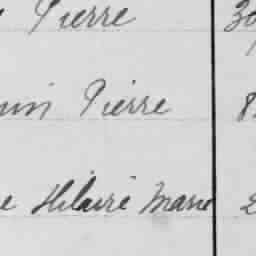 Pierre 30
Pierre 8
Hilaire Marie 2